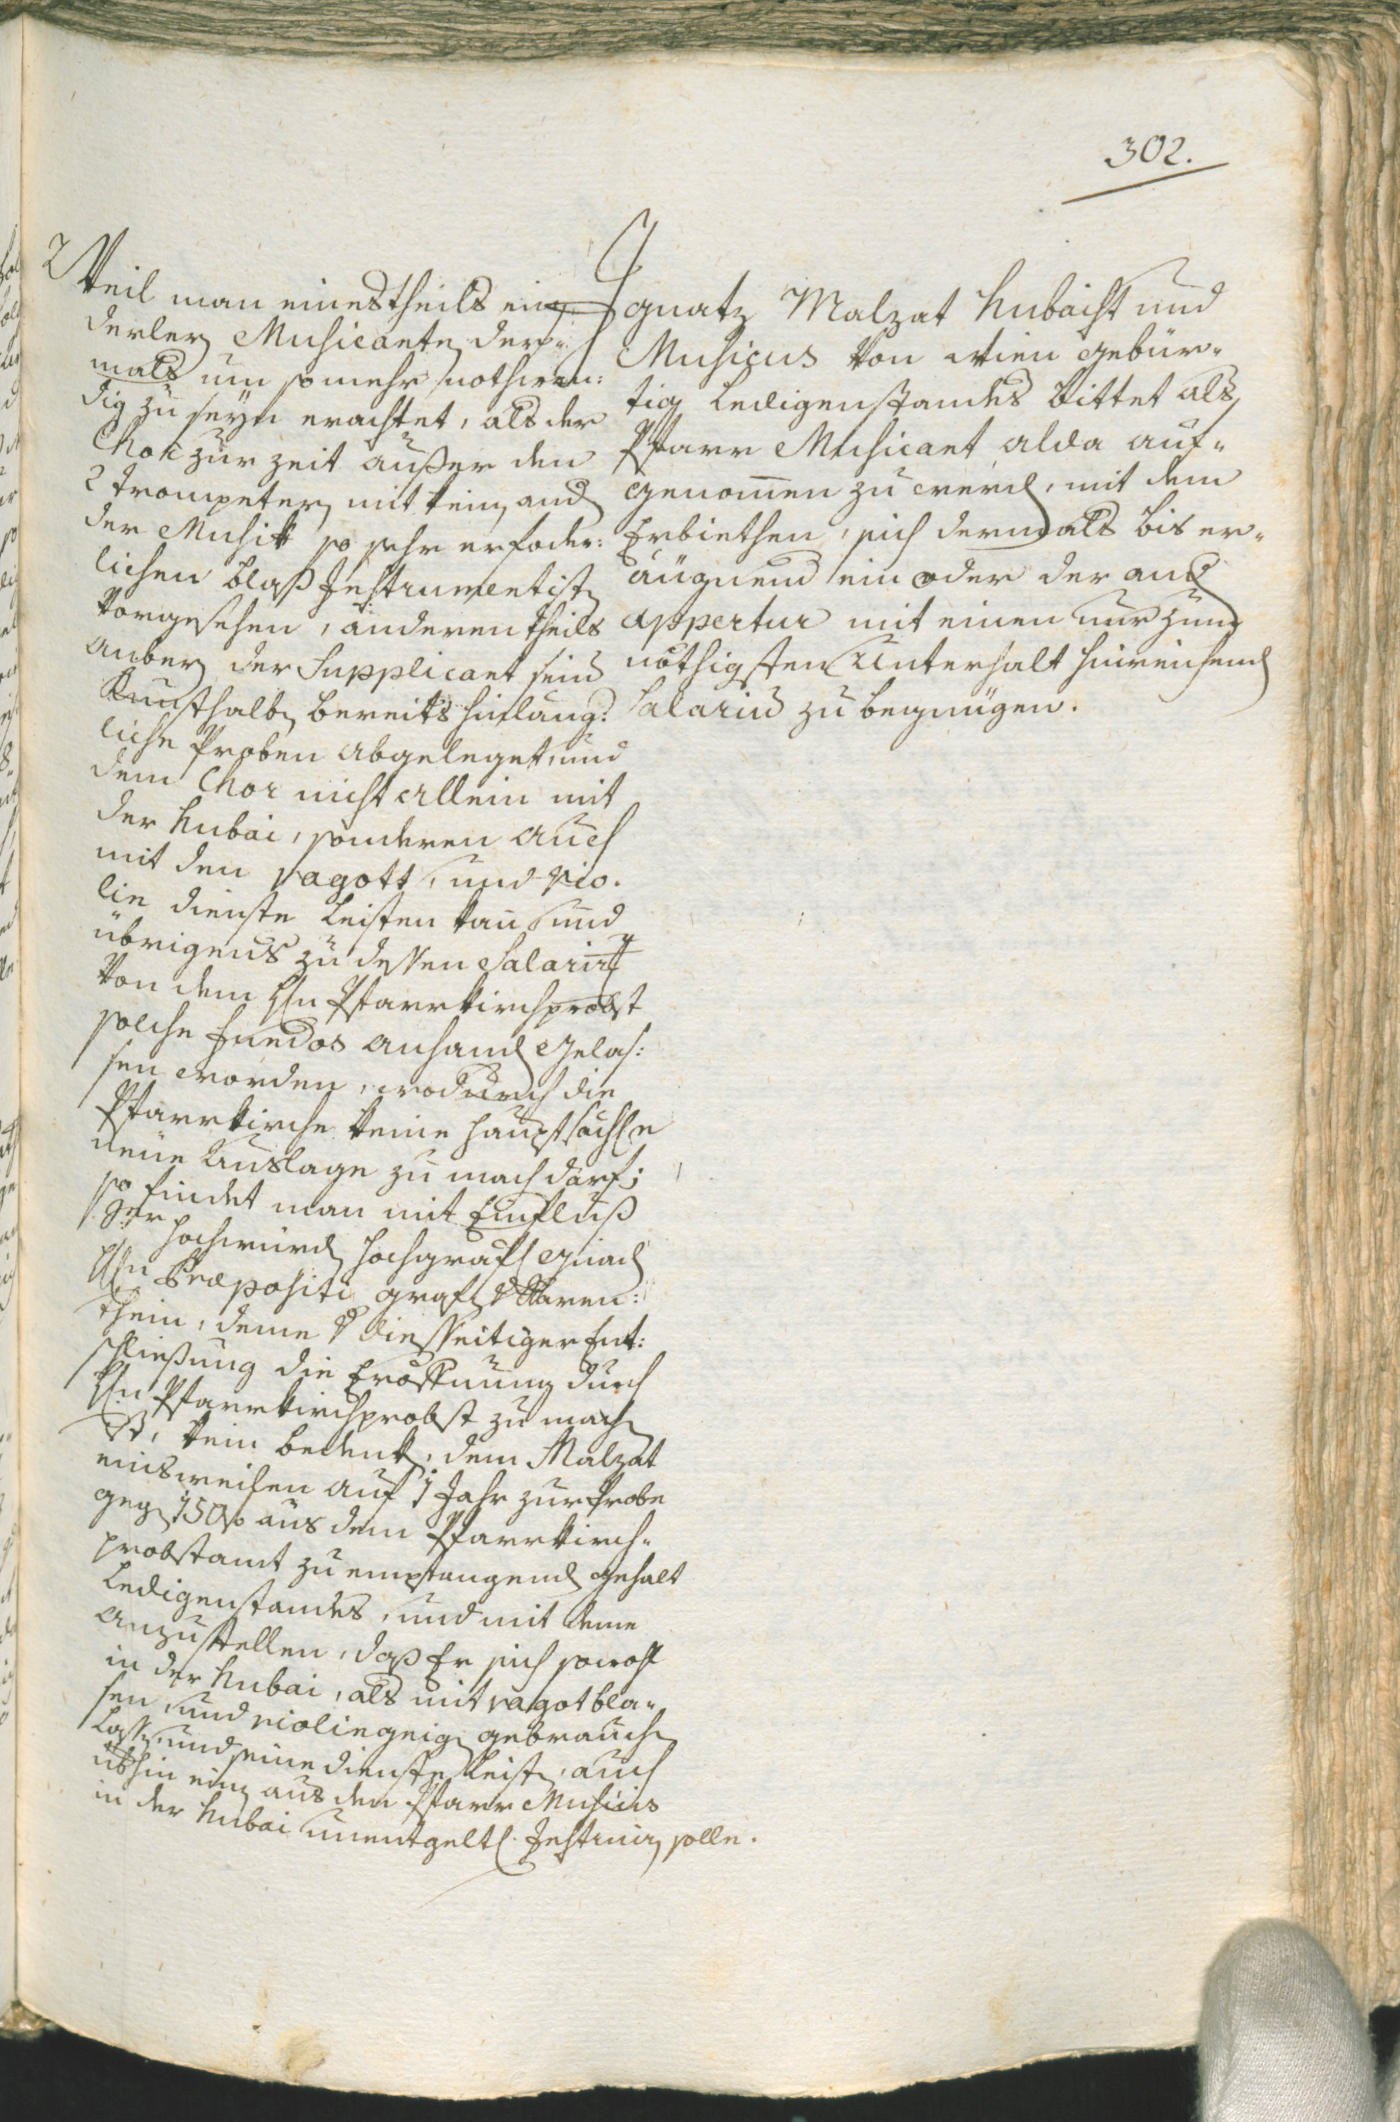 302.
Weil man einestheils ein
derley Musicanten der-
mals um so mehr nothwen:
dig zu seyn erachtet, als der
Chor zur Zeit außer den
2 Trompetern mit kein and
der Musik so sehr erforder:
lichen blaß Instrumentisten
vorgesehen, anderentheils
anbey der Supplicant sein
Kunsthalben bereits hinläng:
liche Proben abgeleget, und
dem Chor nicht allein mit
der Hubai, sonderen auch
mit den Fagott, und Vio-
lin dienste Leisten kan und
übrigens zu dessen Salarirung
von dem Hn Pfarrkirchprobst
solche Fundos anhand gelas:
sen worden, wodurch die
Pfarrkirche keine hauptsächl.
neue Auslage zu machen darf;
so findet man mit Einfluß
Ser hochwürd hochgräfl gnad
Hn Præpositi Grafen v Saren:
thein, deme v diesseitiger Ent:
schließung die Eröffnung durch
Hn Pfarrkirchprobst zu machen
ist, kein bedenken, dem Malzat
einsweilen auf 1 Jahr zur Probe
gegen 150 f aus dem Pfarrkirch-
probstamt zu empfangend gehalt
Ledigenstandes, und mit deme
anzustellen, daß Er sich sowohl
in der Hubai, als mit Fagotbla-
sen, und violingeigen gebrauchen
lassen, und seine dienste leisten, auch
einen aus den Pfarr Musicis
in der Hubai unentgeltl. Instruiren solle.
Ignatz Malzat Hubaist und
Musicus von Wien gebür-
tig Ledigenstandes bittet als
Pfarr Musicant alda auf-
genomen zu werden, mit dem
Erbiethen, sich dermals bis er-
äugnend ein oder der and
appertur mit einen nur zum
nöthigsten Unterhalt hinreichend
Salario zu begnügen.